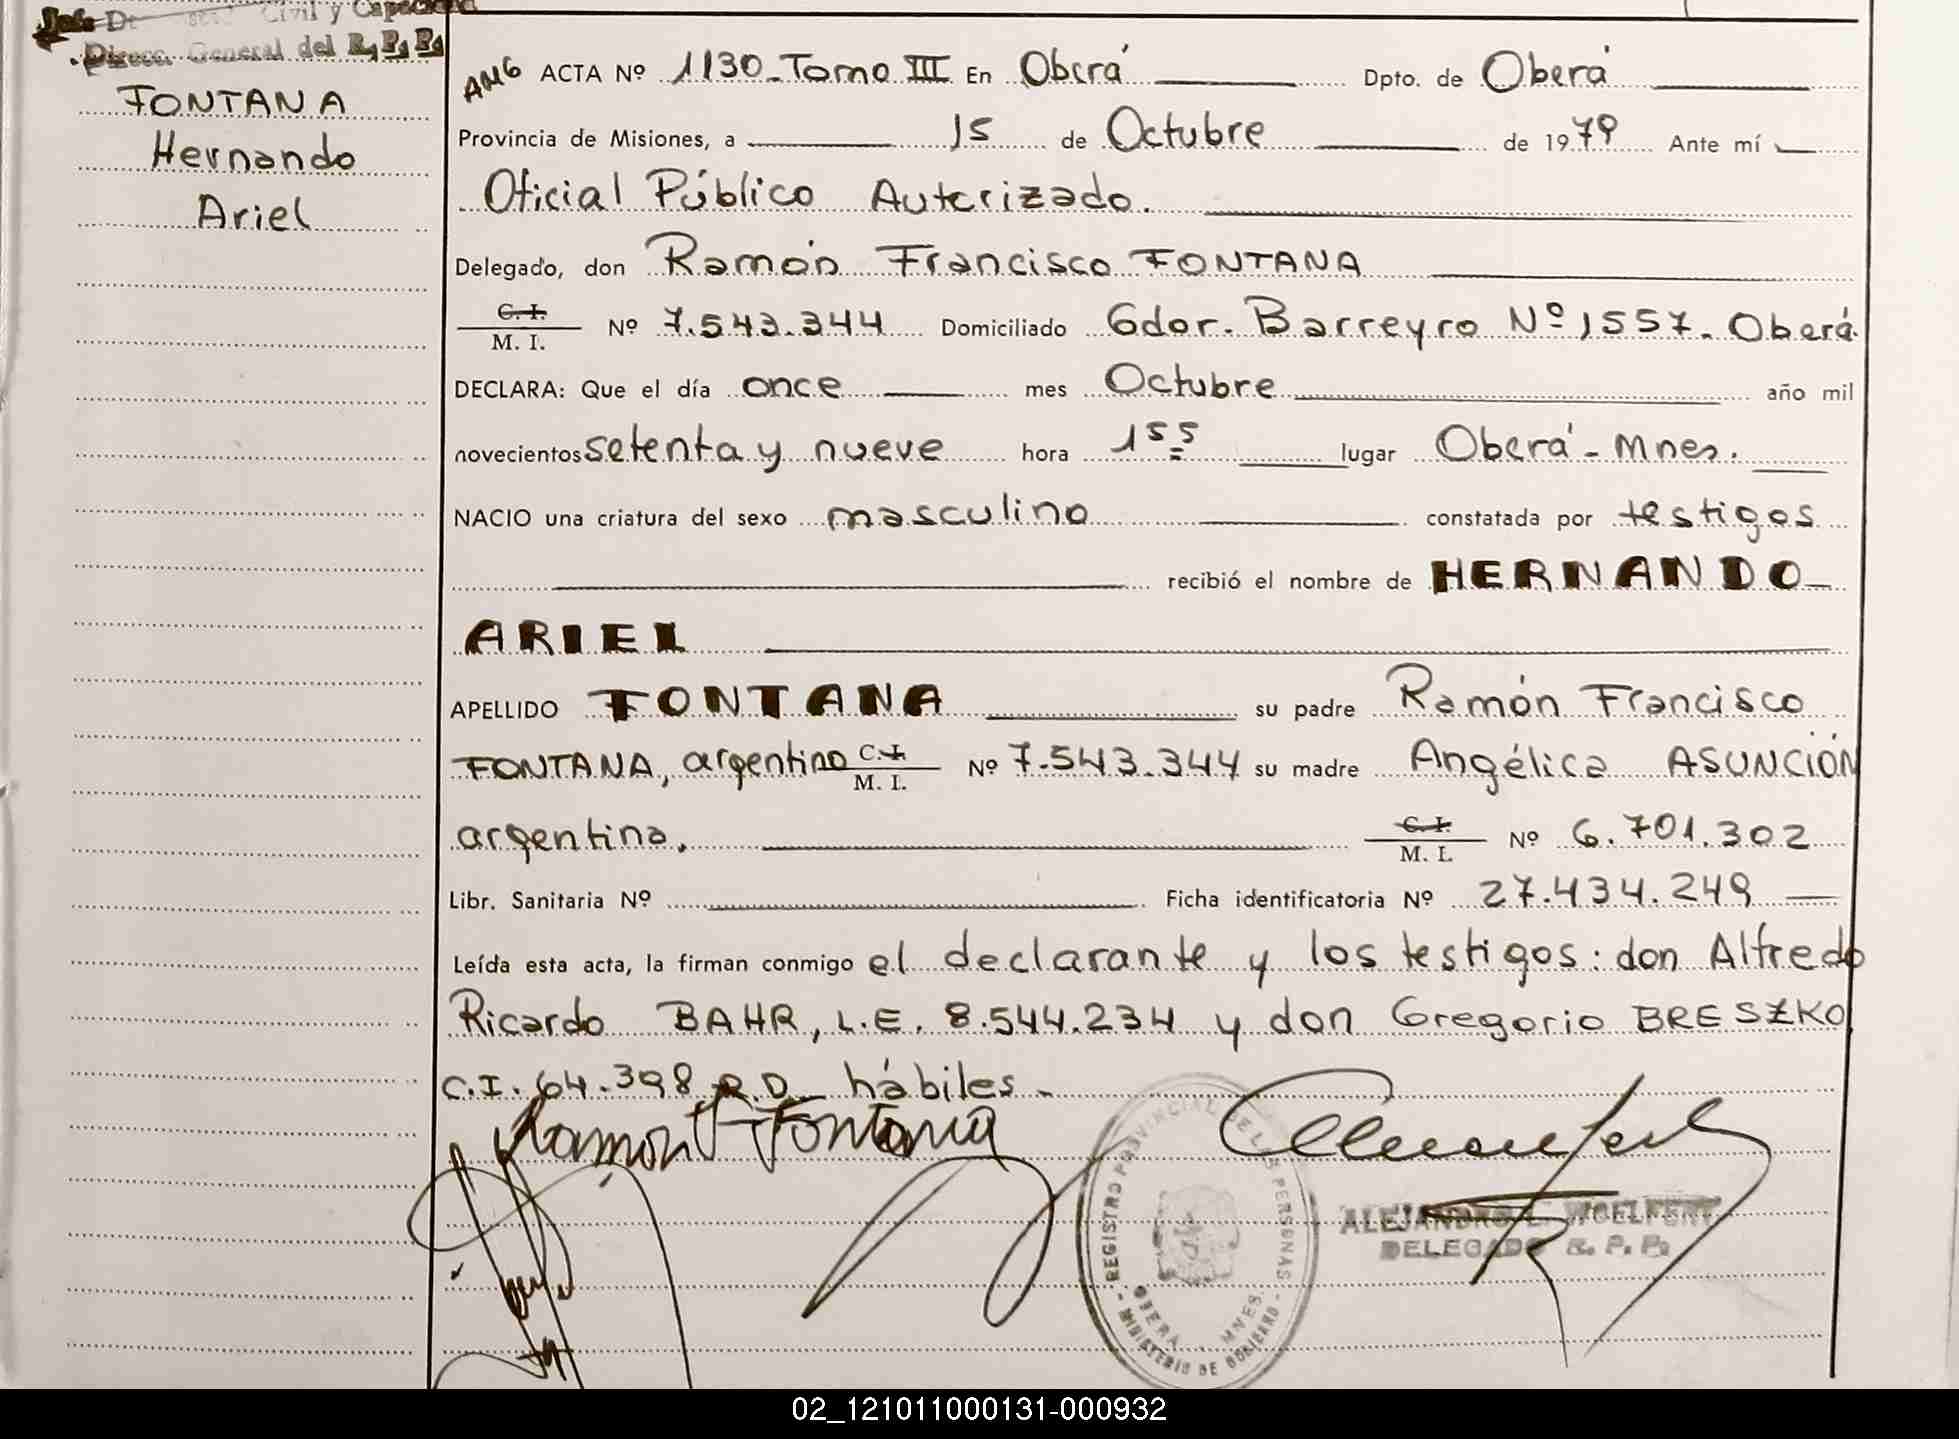 Civil y Capacidad
Direcc. General del R. P. P.
FONTANA
Hernando
Ariel
AMG ACTA Nº 1130 - Tomo III En Oberá Dpto. de Oberá
Provincia de Misiones, a 15 de Octubre de 1979 Ante mí
Oficial Público Autorizado.
Delegado, don Ramón Francisco FONTANA
C. I.
M. I. Nº 7.543.344 Domiciliado Gdor. Barreyro Nº 1557. Oberá.
DECLARA: Que el día once mes Octubre año mil
novecientos setenta y nueve hora 1 55 lugar Oberá - Mnes.
NACIO una criatura del sexo masculino constatada por testigos
recibió el nombre de HERNANDO
ARIEL
APELLIDO FONTANA su padre Ramón Francisco
FONTANA, argentino C. I.
M. I. Nº 7.543.344 su madre Angélica ASUNCIÓN
argentina. C. I.
M. I. Nº 6.701.302
Libr. Sanitaria Nº Ficha identificatoria Nº 27.434.249
Leída esta acta, la firman conmigo el declarante y los testigos: don Alfredo
Ricardo BAHR, L.E. 8.544.234 y don Gregorio BRESZKO
C.I. 64.398 R.D. hábiles -
Ramon F Fontana
REGISTRO PROVINCIAL DE LAS PERSONAS
OBERA - MNES.
MINISTERIO DE GOBIERNO
ALEJANDRO L. WOELFERT
DELEGADO R. P. P.
02_121011000131-000932